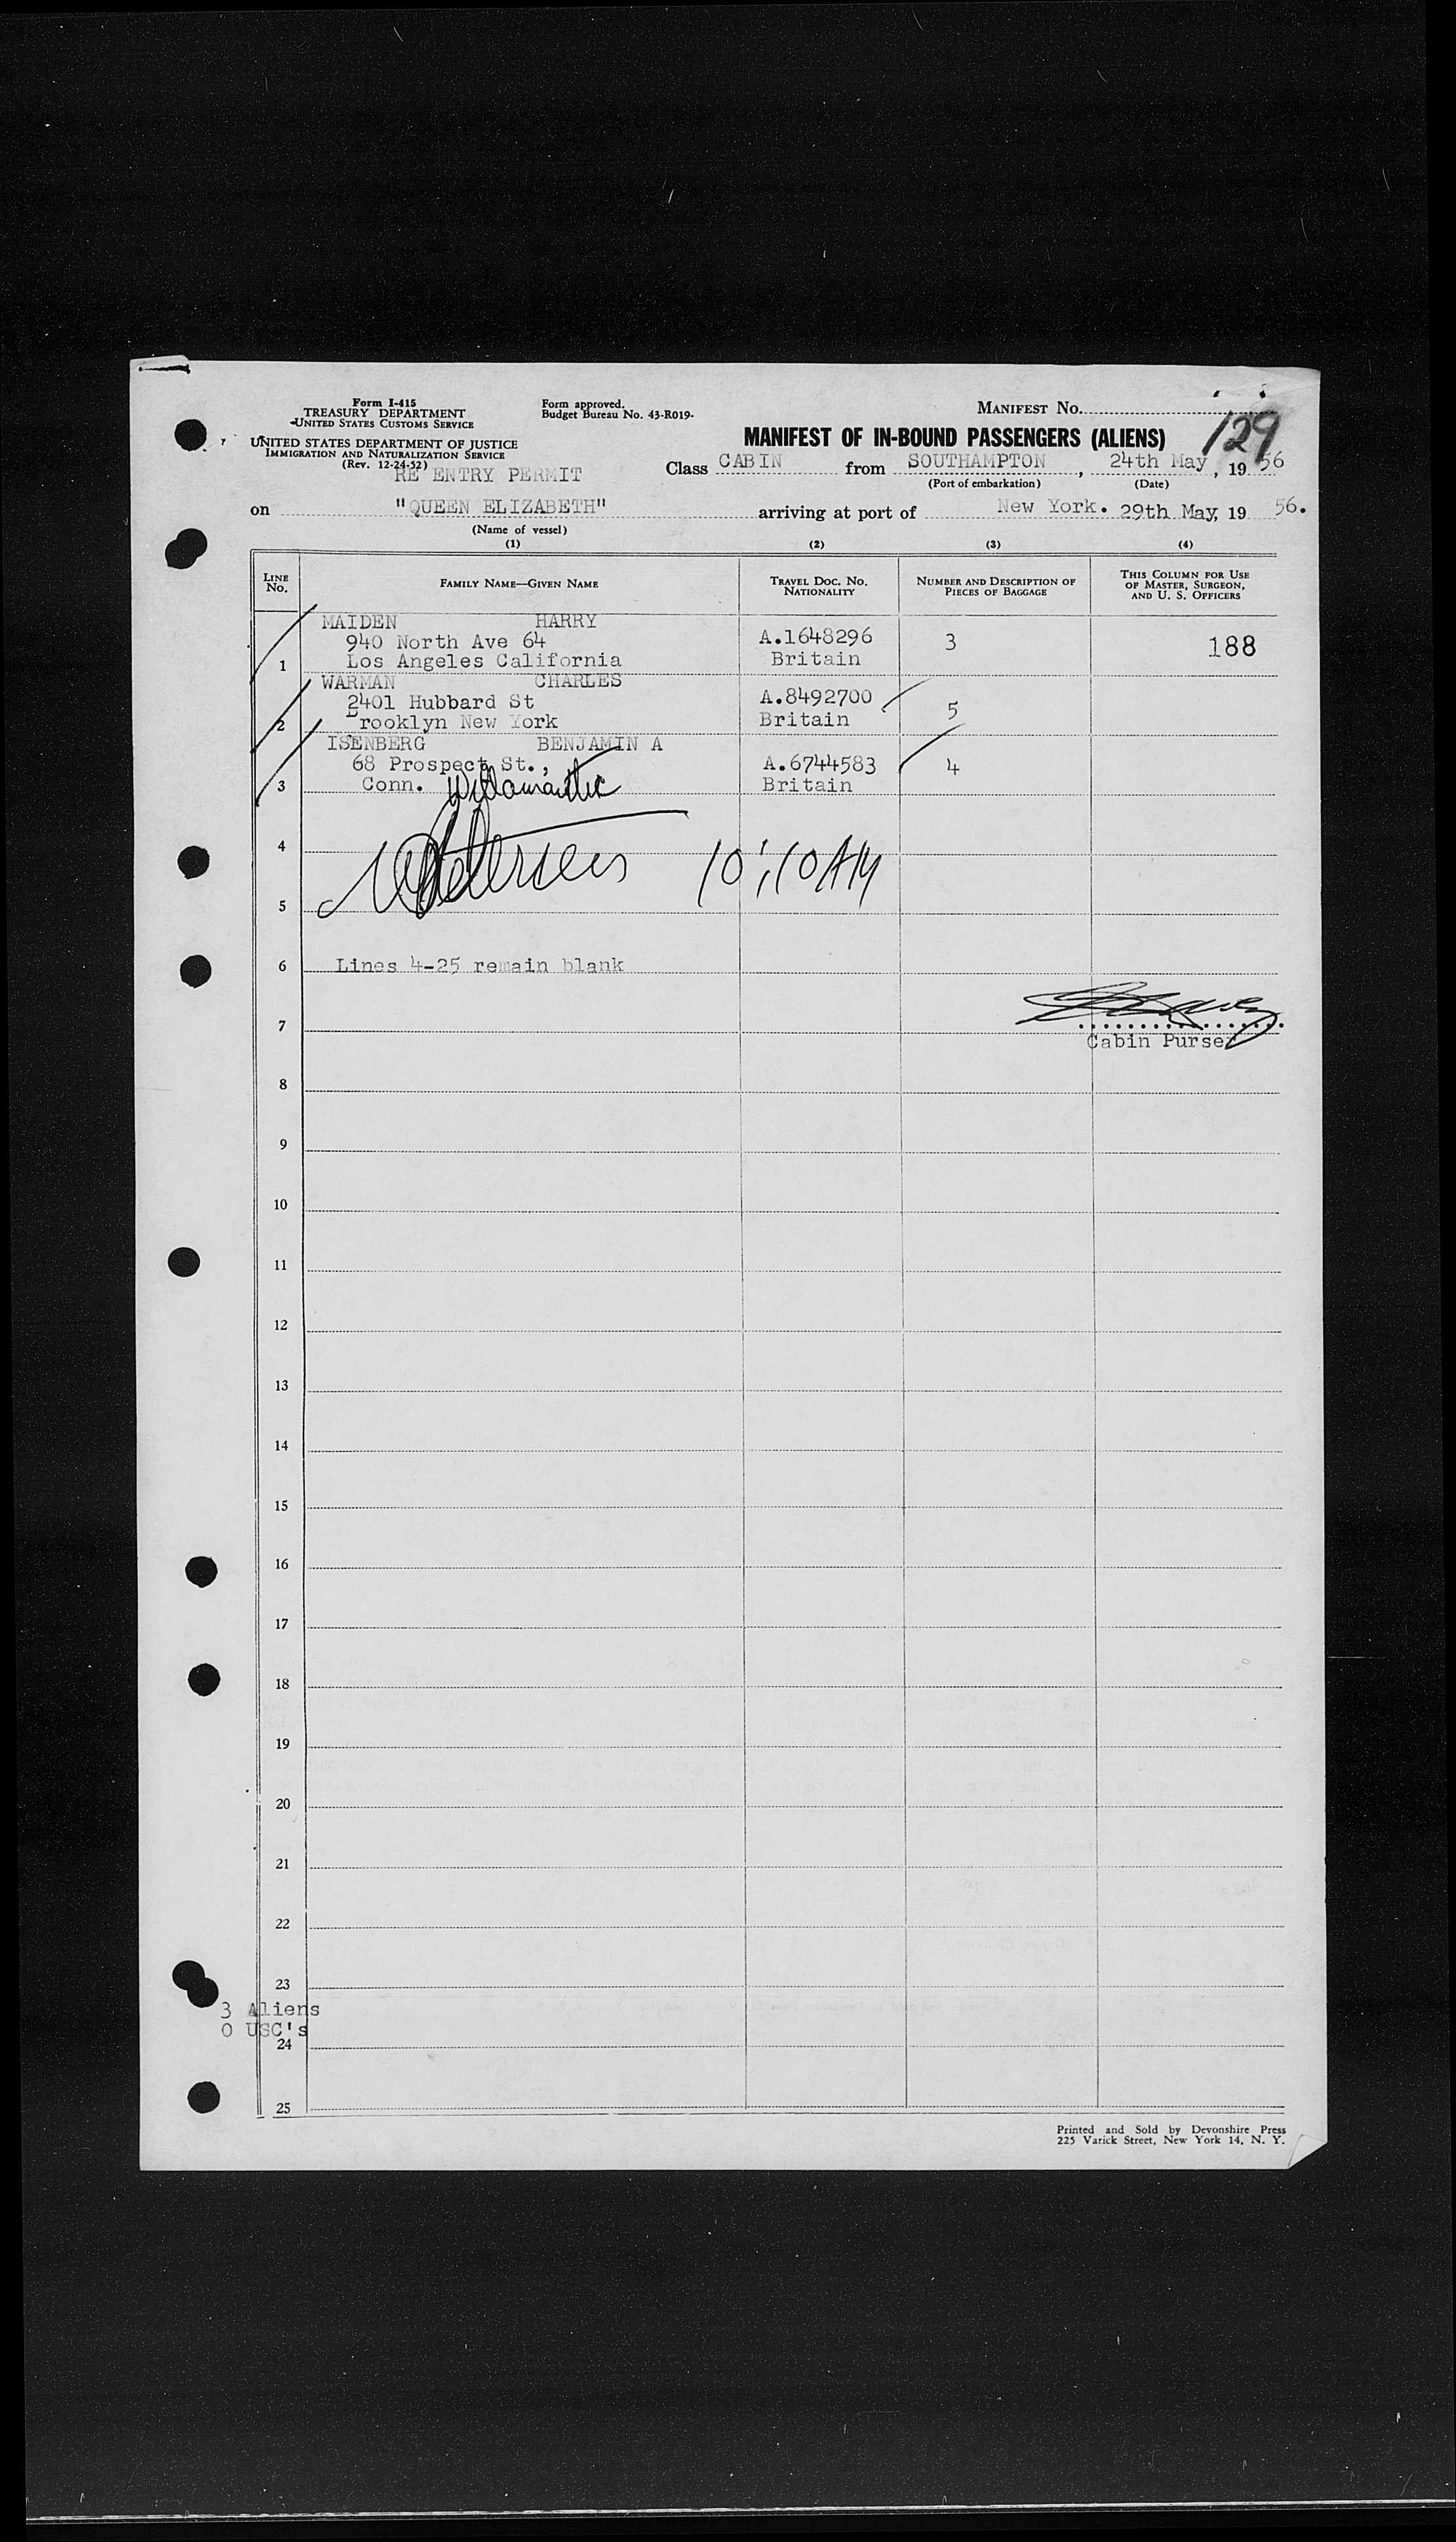 Form I-415
TREASURY DEPARTMENT
UNITED STATES CUSTOMS SERVICE
Form approved.
Budget Bureau No. 43-R019-
MANIFEST NO.
129
UNITED STATES DEPARTMENT OF JUSTICE
IMMIGRATION AND NATURALIZATION SERVICE
(Rev. 12-24-52)
RE ENTRY PERMIT
MANIFEST OF IN-BOUND PASSENGERS (ALIENS)
Class CABIN from SOUTHAMPTON, 24th May, 19 56
(Port of embarkation) (Date)
on "QUEEN ELIZABETH" arriving at port of New York. 29th May, 19 56.
(Name of vessel)
(1) (2) (3) (4)
LINE NO. FAMILY NAME—GIVEN NAME TRAVEL DOC. NO. NATIONALITY NUMBER AND DESCRIPTION OF PIECES OF BAGGAGE THIS COLUMN FOR USE OF MASTER, SURGEON, AND U. S. OFFICERS
MAIDEN HARRY
940 North Ave 64 A.1648296 3 188
1 Los Angeles California Britain
WARMAN CHARLES
2401 Hubbard St A.8492700 5
2 Brooklyn New York Britain
ISENBERG BENJAMIN A
68 Prospect St., A.6744583 4
3 Conn. Willamantic Britain
4
10:10 AM
5
6 Lines 4-25 remain blank
7
Cabin Purser
8
9
10
11
12
13
14
15
16
17
18
19
20
21
22
23
3 Aliens
0 USC's
24
25
Printed and Sold by Devonshire Press
225 Varick Street, New York 14, N. Y.